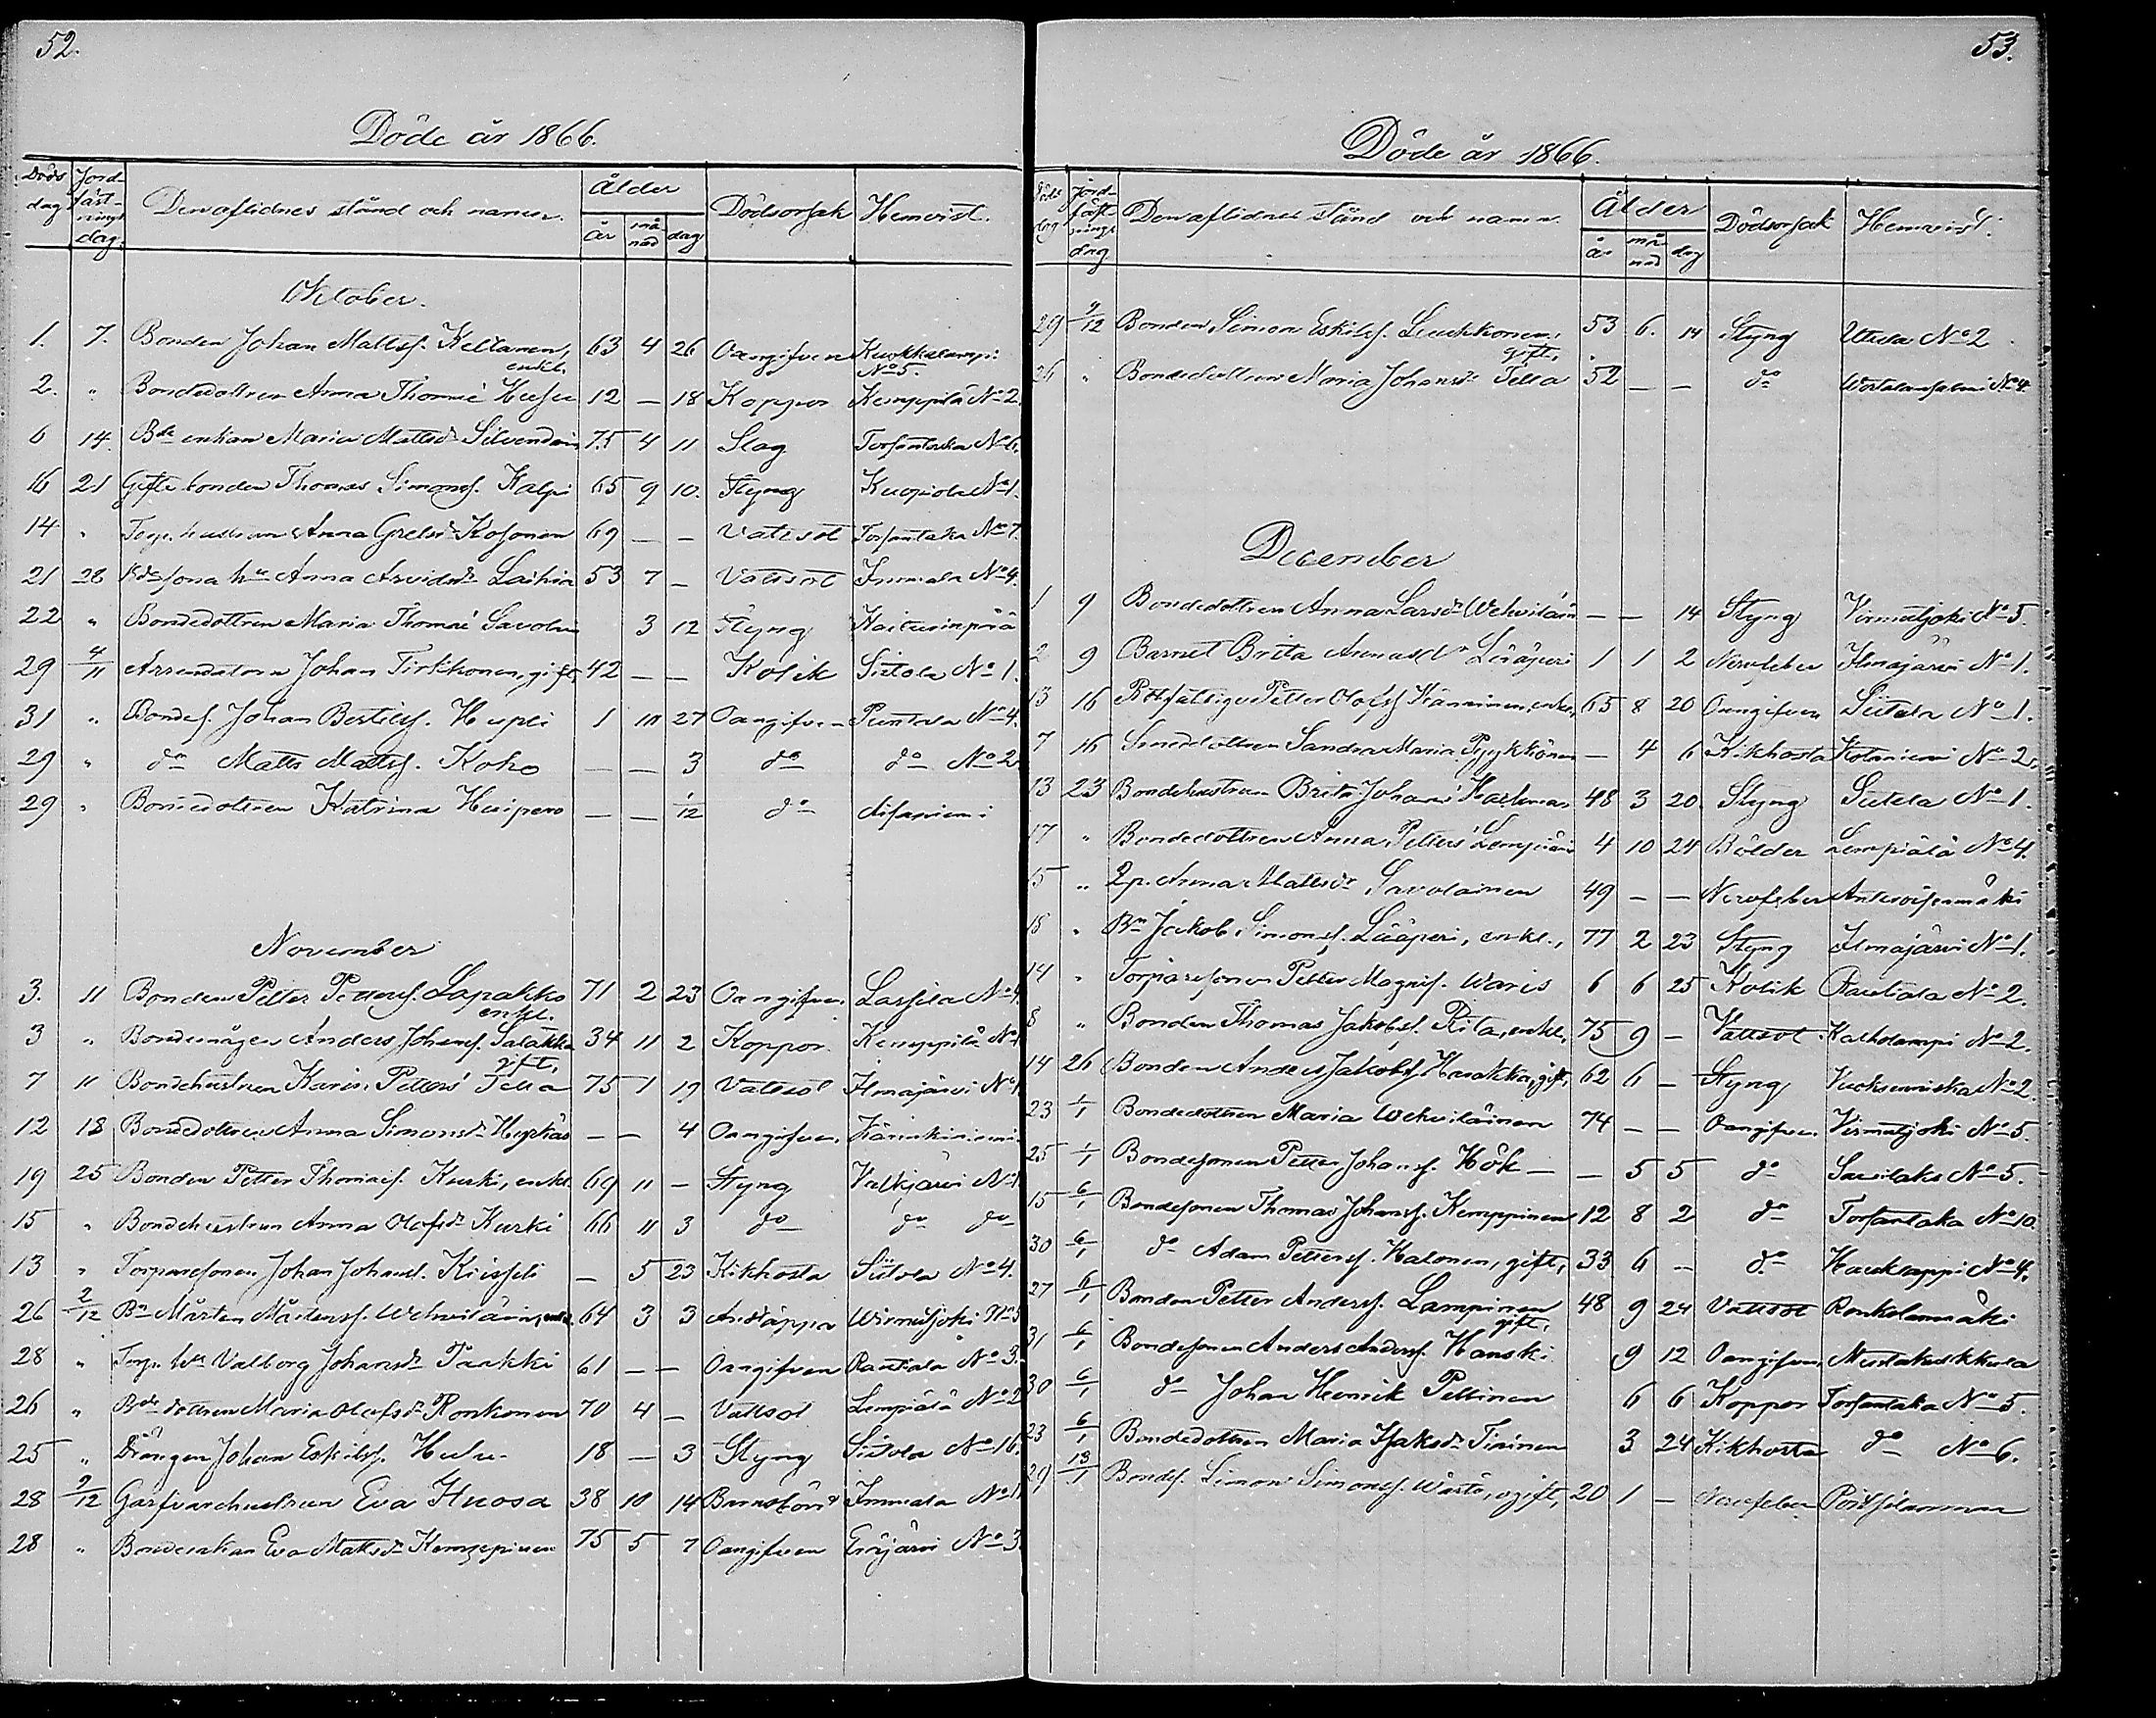 52.
Döde år 1866.
Döds dag Jordfästnings dag. Den aflidnes stånd och namn. Ålder år månad dag Dödsorsak Hemvist.
Oktober.
1. 7. Bonden Johan Mattsf. Keltanen, enkl. 63 4 26 Oangifven Kuokkalampi No 5.
2. " Bondedottren Anna Thomæ Husu 12 — 18 Koppor Kemppilä No 2.
6 14. Bde enkan Maria Mattsdr 75 4 11 Slag Torsantaka No 6.
16 21 Gifte bonden Thomas Simonsf. Kalpi 65 9 10. Styng No 1.
14 " Torp. hustrun Anna Gretsdr Kosonen 69 — — Vattsot Torsantaka No 7.
21 28 Anna Arvidsdr Laihia 53 7 — Vattsot Immala No 4.
22 " Bondedottren Maria Thomæ 3 12 Styng
29 4/11 Arrendatorn Johan Tirkkonen, gift 42 — — Kolik Siitola No 1.
31 " Bondes. Johan Bertilsf. Hupli 1 10 27 Oangifven Puntala No 4.
29 " do Matts Mattsf. Koho — — 3 do do No 2.
29 " Bondedottren Katrina — — 1/12 do
November
3. 11 Bonden Petter Pettersf. Lapakko enkl. 71 2 23 Oangifven Lassila No 4
3 " Bondemågen Anders Johansf. Salakka gift, 34 11 2 Koppor. Kemppilä No 1
7 11 Bondehustrun Karin Petters Tella 75 1 19 Vattsot Ilmajärvi No 1
12 18 Bondedottren Anna Simonsdr — — 4 Oangifven
19 25 Bonden Petter Thomæf. Kurki, enkl. 69 11 — Styng Valkjärvi No 1
15 " Bondehustrun Anna Olofsdr Kurki 66 11 3 do do do
13 " Torparesonen Johan Johansf. — 5 23 Kikhosta Siitola No 4.
26 2/12 Bn Mårten Mårtensf. Wehviläin, enkl. 64 3 3 Andtäppa Wirmutjoki No 5
28 " Torp. hu Valborg Johansdr Paakki 61 — — Oangifven Rautiala No 3.
26 " Bde dottren Maria Olofsdr Ronkonen 70 4 — Vattsot Lempiälä No 2
25 " Drängen Johan Eskilsf. 18 — 3 Styng Siitola No 16.
28 9/12 Garfvarehustrun Eva Huosa 38 10 14 Barnsbörd Immala No 1
28 " Bondeenkan Eva Mattsdr Kemppinen 75 5 7 Oangifven Eräjärvi No 3
53.
Döde år 1866.
Döds dag Jordfästnings dag Den aflidnes stånd och namn. Ålder år månad dag Dödsorsak Hemvist.
29 9/12 Bonden Simon Eskilsf. Luukkonen, gift, 53 6. 14 Styng Utula No 2
26 " Bondedottren Maria Johansdr Tella 52 — — do No 4.
December
1 9 Bondedottren Anna Larsdr Wehviläin — — 14 Styng Virmutjoki No 5.
2 9 Barnet Brita Annasdr Lääperi 1 1 2 Nervfeber Ilmajärvi No 1.
13 16 Rotefattige Petter Olofsf. Känninen, enkl., 65 8 20 Oangifven Siitola No 1.
7 16 Smeddottren Sandra Maria Pyykkönen — 4 6 Kikhosta Kotaniemi No 2.
13 23 Bondehustrun Brita Johans 48 3 20. Styng Siitola No 1.
17 " Bondedottren Anna Petters Lempiäin 4 10 24 Bölder Lempiälä No 4.
15 " Anna Mattsdr Savolainen 49 — — Nervfeber
18 " Bn Jakob Simonsf. Lääperi, enkl., 77 2 23 Styng Ilmajärvi No 1.
14 " Torparesonen Petter Magnsf. Waris 6 6 25 Kolik Rautiala No 2.
8 " Bonden Thomas Jakobsf. Rita, enkl. 75 9 — Vattsot No 2.
14 26 Bonden Anders Jakobsf. Harakka, gift, 62 6 — Styng Vuoksenniska No 2.
23 1/1 Bondedottren Maria Wehviläinen 74 — — Oangifven Virmutjoki No 5.
25 1/1 Bondesonen Petter Johansf. Hök — — 5 5 do No 5.
15 6/1 Bondesonen Thomas Johansf. Kemppinen 12 8 2 do Torsantaka No 10.
30 6/1 do Adam Pettersf. Halonen, gift, 33 6 — do Haukkappi No 4.
27 6/1 Bonden Petter Andersf. Lampinen gift, 48 9 24 Vattsot Ronkolanmäki
31 6/1 Bondesonen Anders Andersf. Hanski 9 12 Oangifven
30 6/1 do Johan Henrik Peltinen 6 6 Koppor Torsantaka No 5.
23 6/1 Bondedottren Maria Isaksdr Tiainen 3 24 Kikhosta do No 6.
29 13/1 Bondes. Simon Simonsf. ogift, 20 1 — Nervfeber